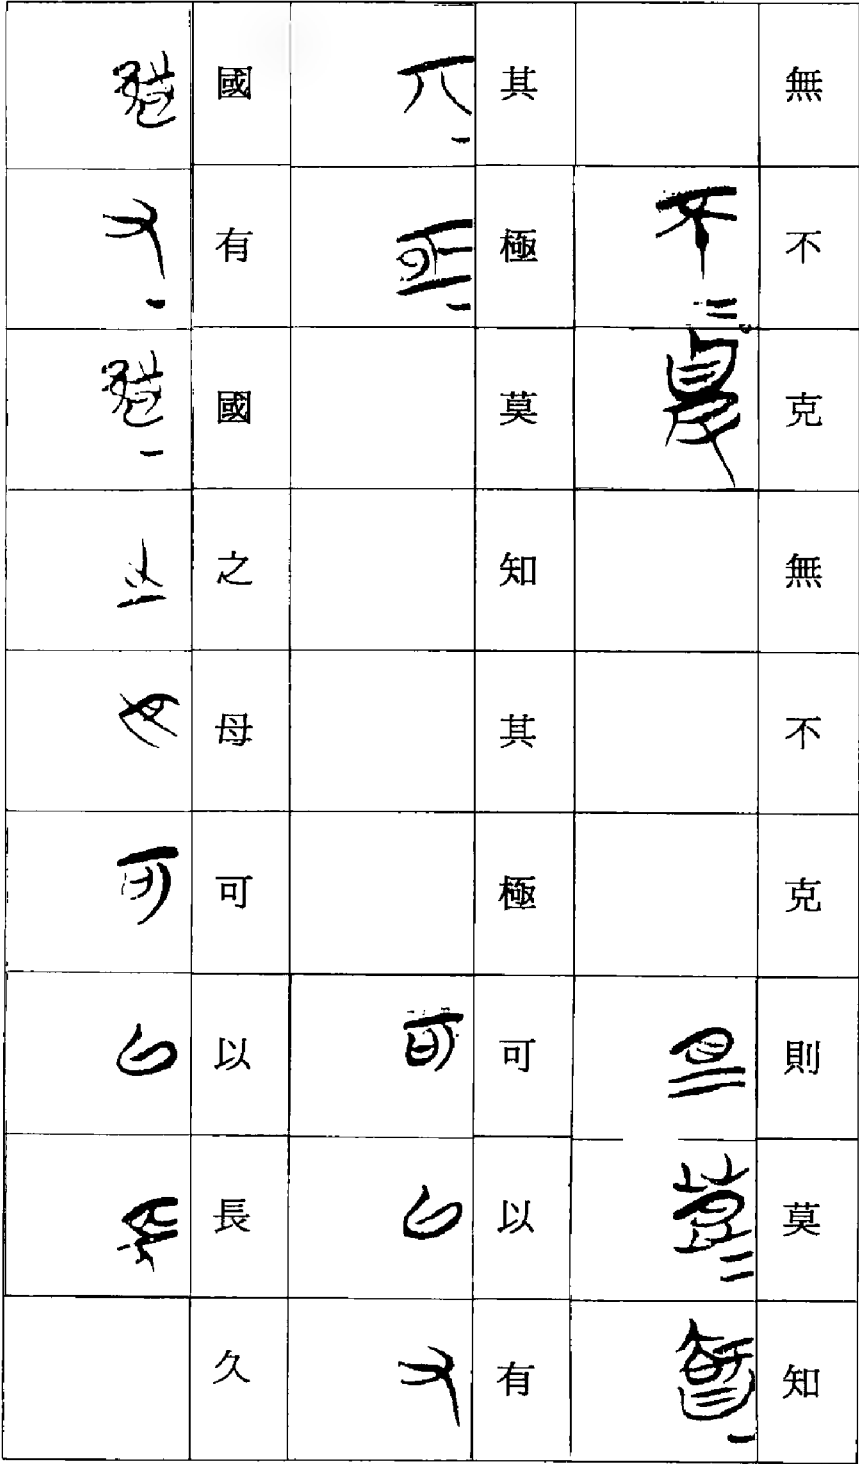 無不克無不克則莫知
其極莫知其極可以有
國有國之母可以長久